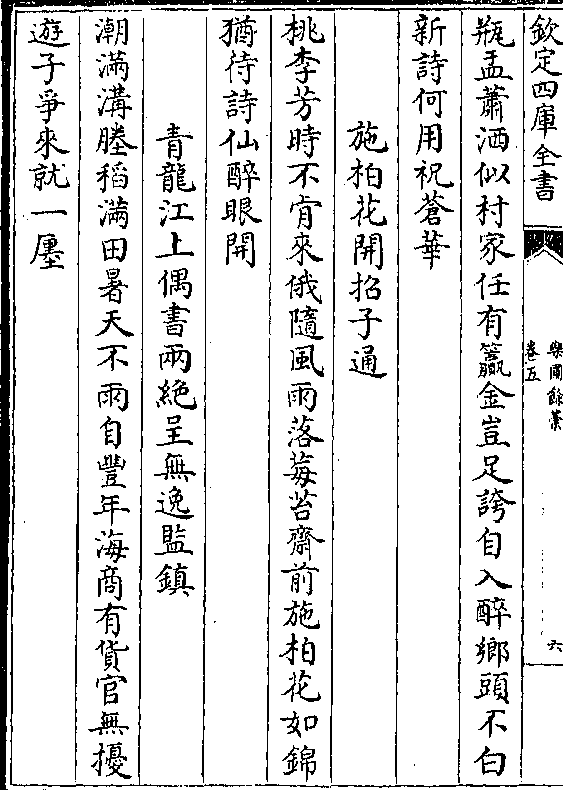 欽定四庫全書
樂圃餘藁
卷五
六
瓶盂蕭洒似村家任有籯金豈足誇自入醉鄉頭不白
新詩何用祝蒼華
施柏花開招子通
桃李芳時不肯來俄隨風雨落莓苔齋前施柏花如錦
猶待詩仙醉眼開
青龍江上偶書兩絶呈無逸監鎮
潮滿溝塍稻滿田暑天不雨自豐年海商有貨官無擾
遊子爭來就一廛